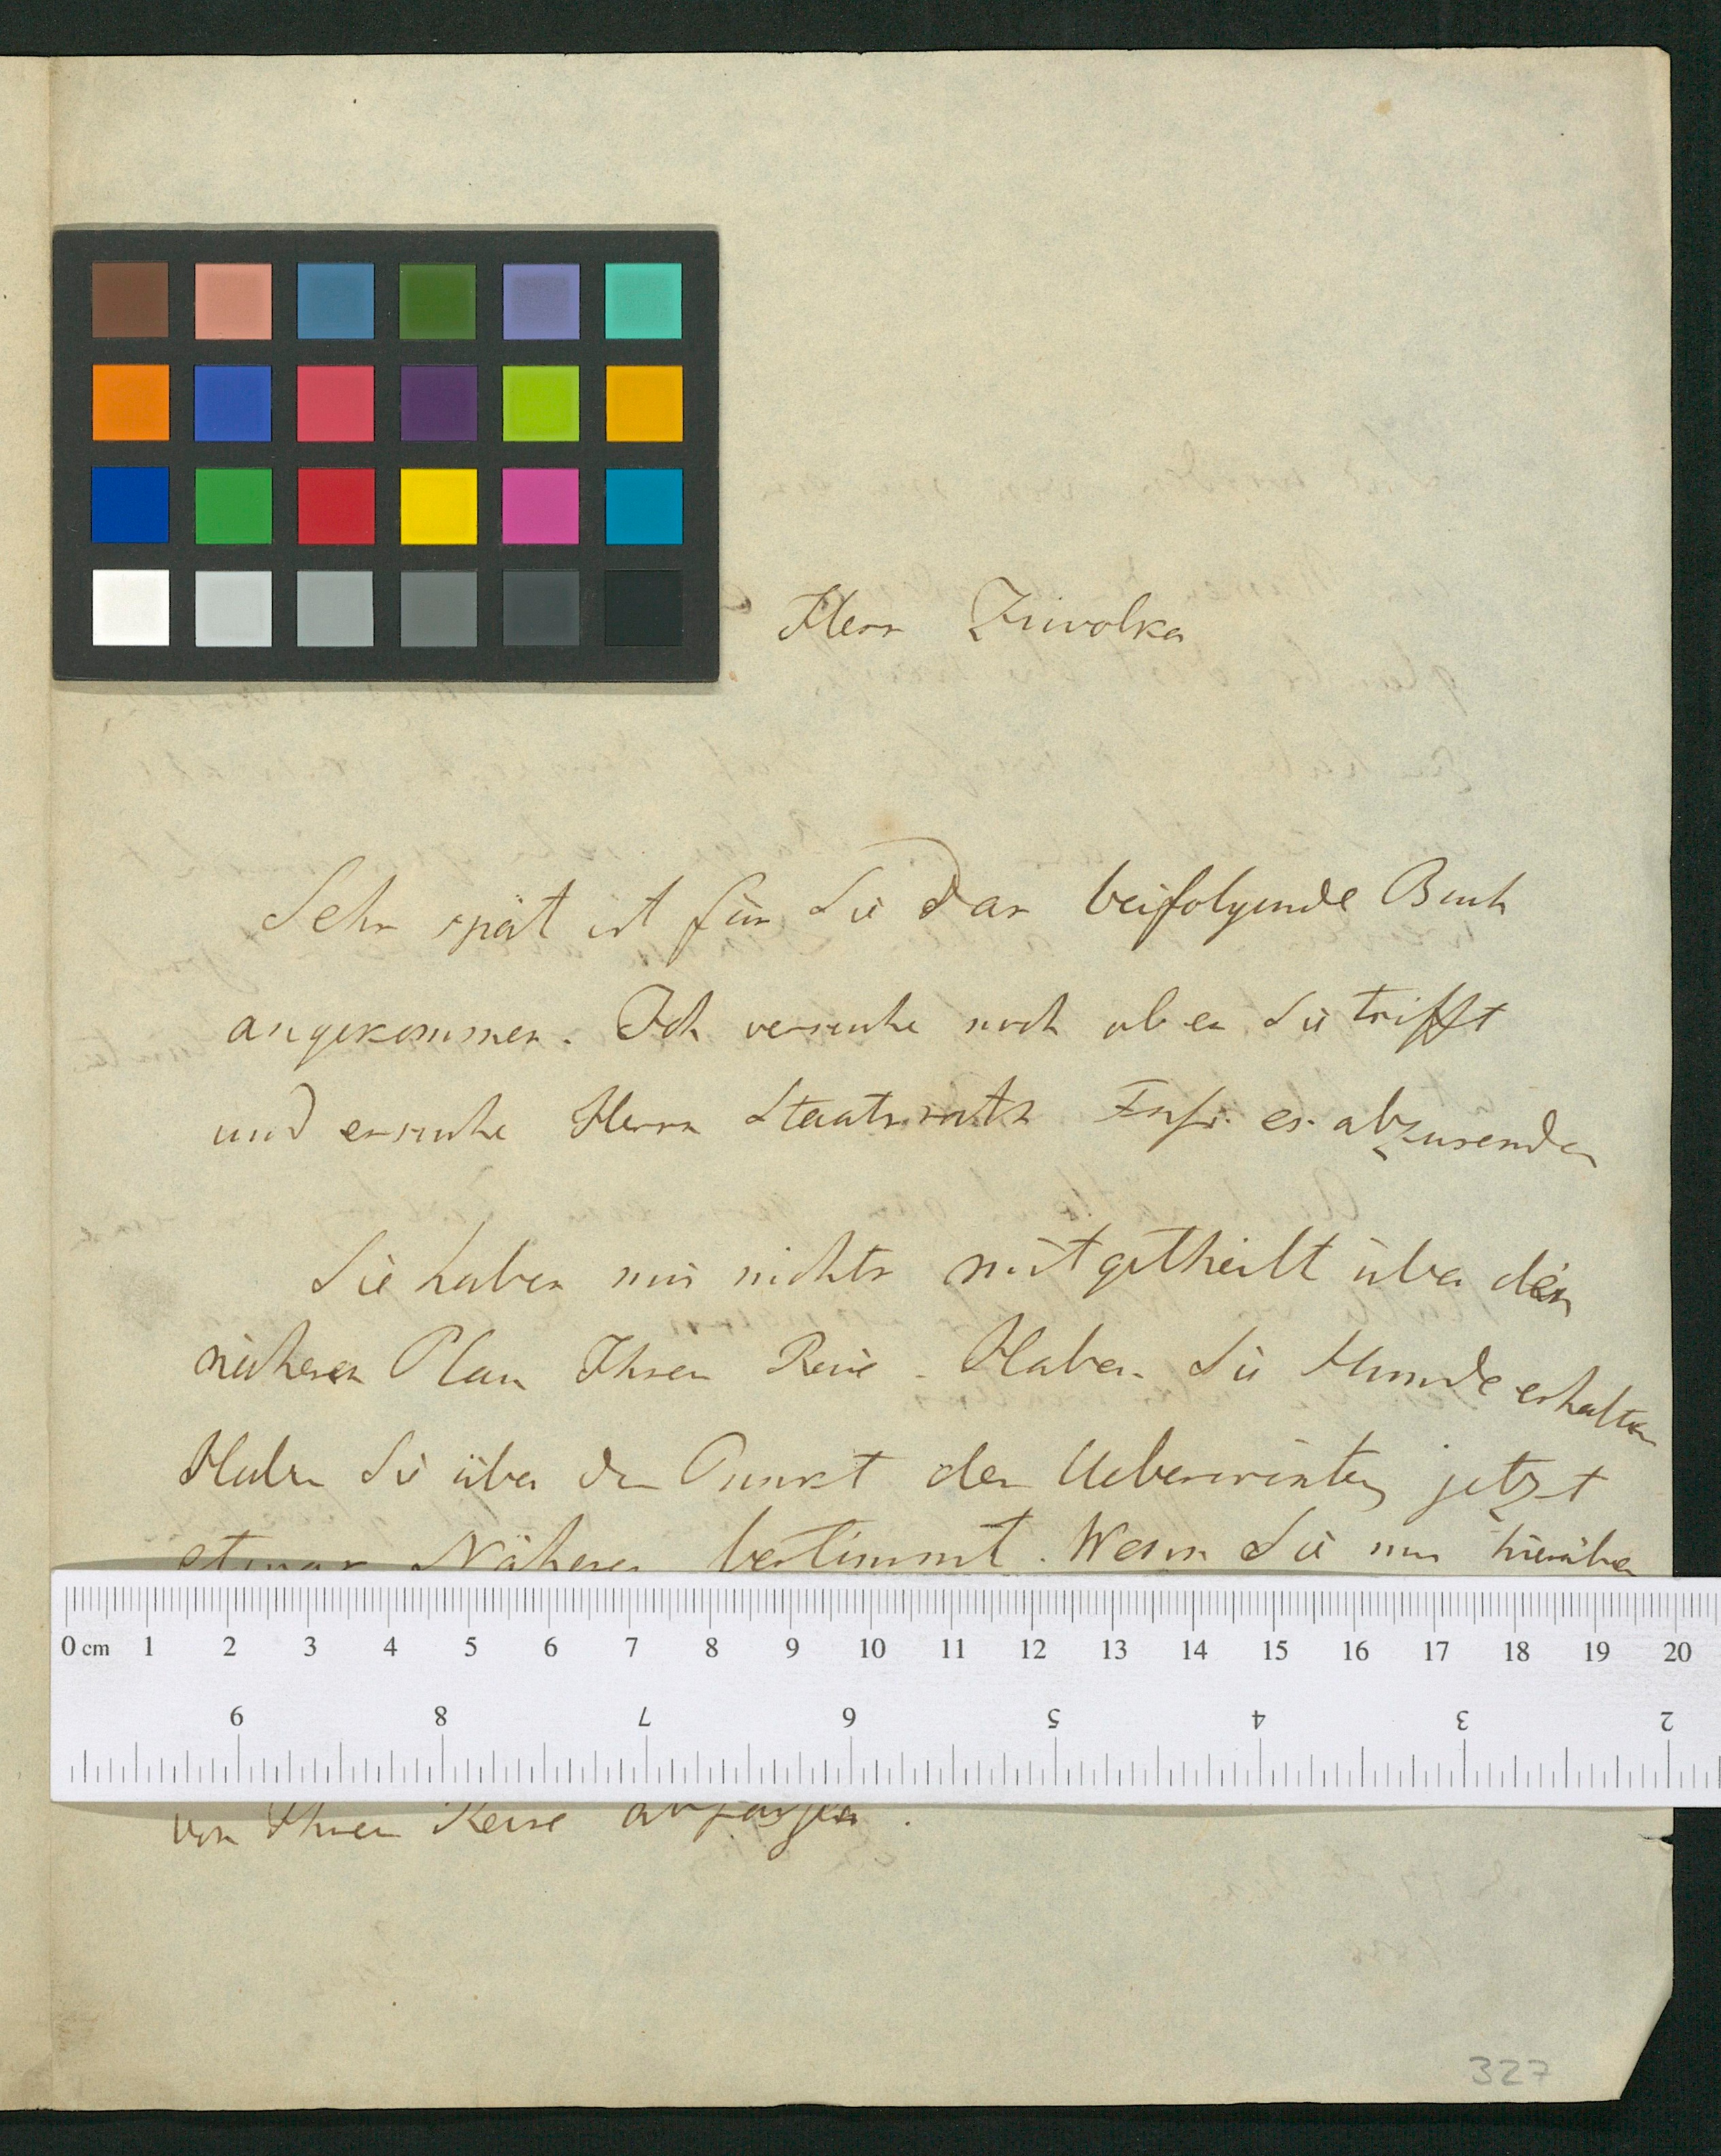 Herr Ziwolka
Sehr spät ist für Sie das beifolgende Buch
angekommen. Ich versuche noch ob es Sie trifft
und ersuche Herrn Staatsrath es abzusenden
Sie haben mir nichts mitgetheilt über den
näheren Plan Ihrer Reise. Haben Sie Hunde erhalten
Haben Sie über den Punkt der Ueberwinterg jetzt
etwas Näheres bestimmt. Wenn Sie mir hierüber
0 cm 1 2 3 4 5 6 7 8 9 10 11 12 13 14 15 16 17 18 19 20
9 8 7 6 5 4 3 2
von Ihrer Reise abfassen.
327